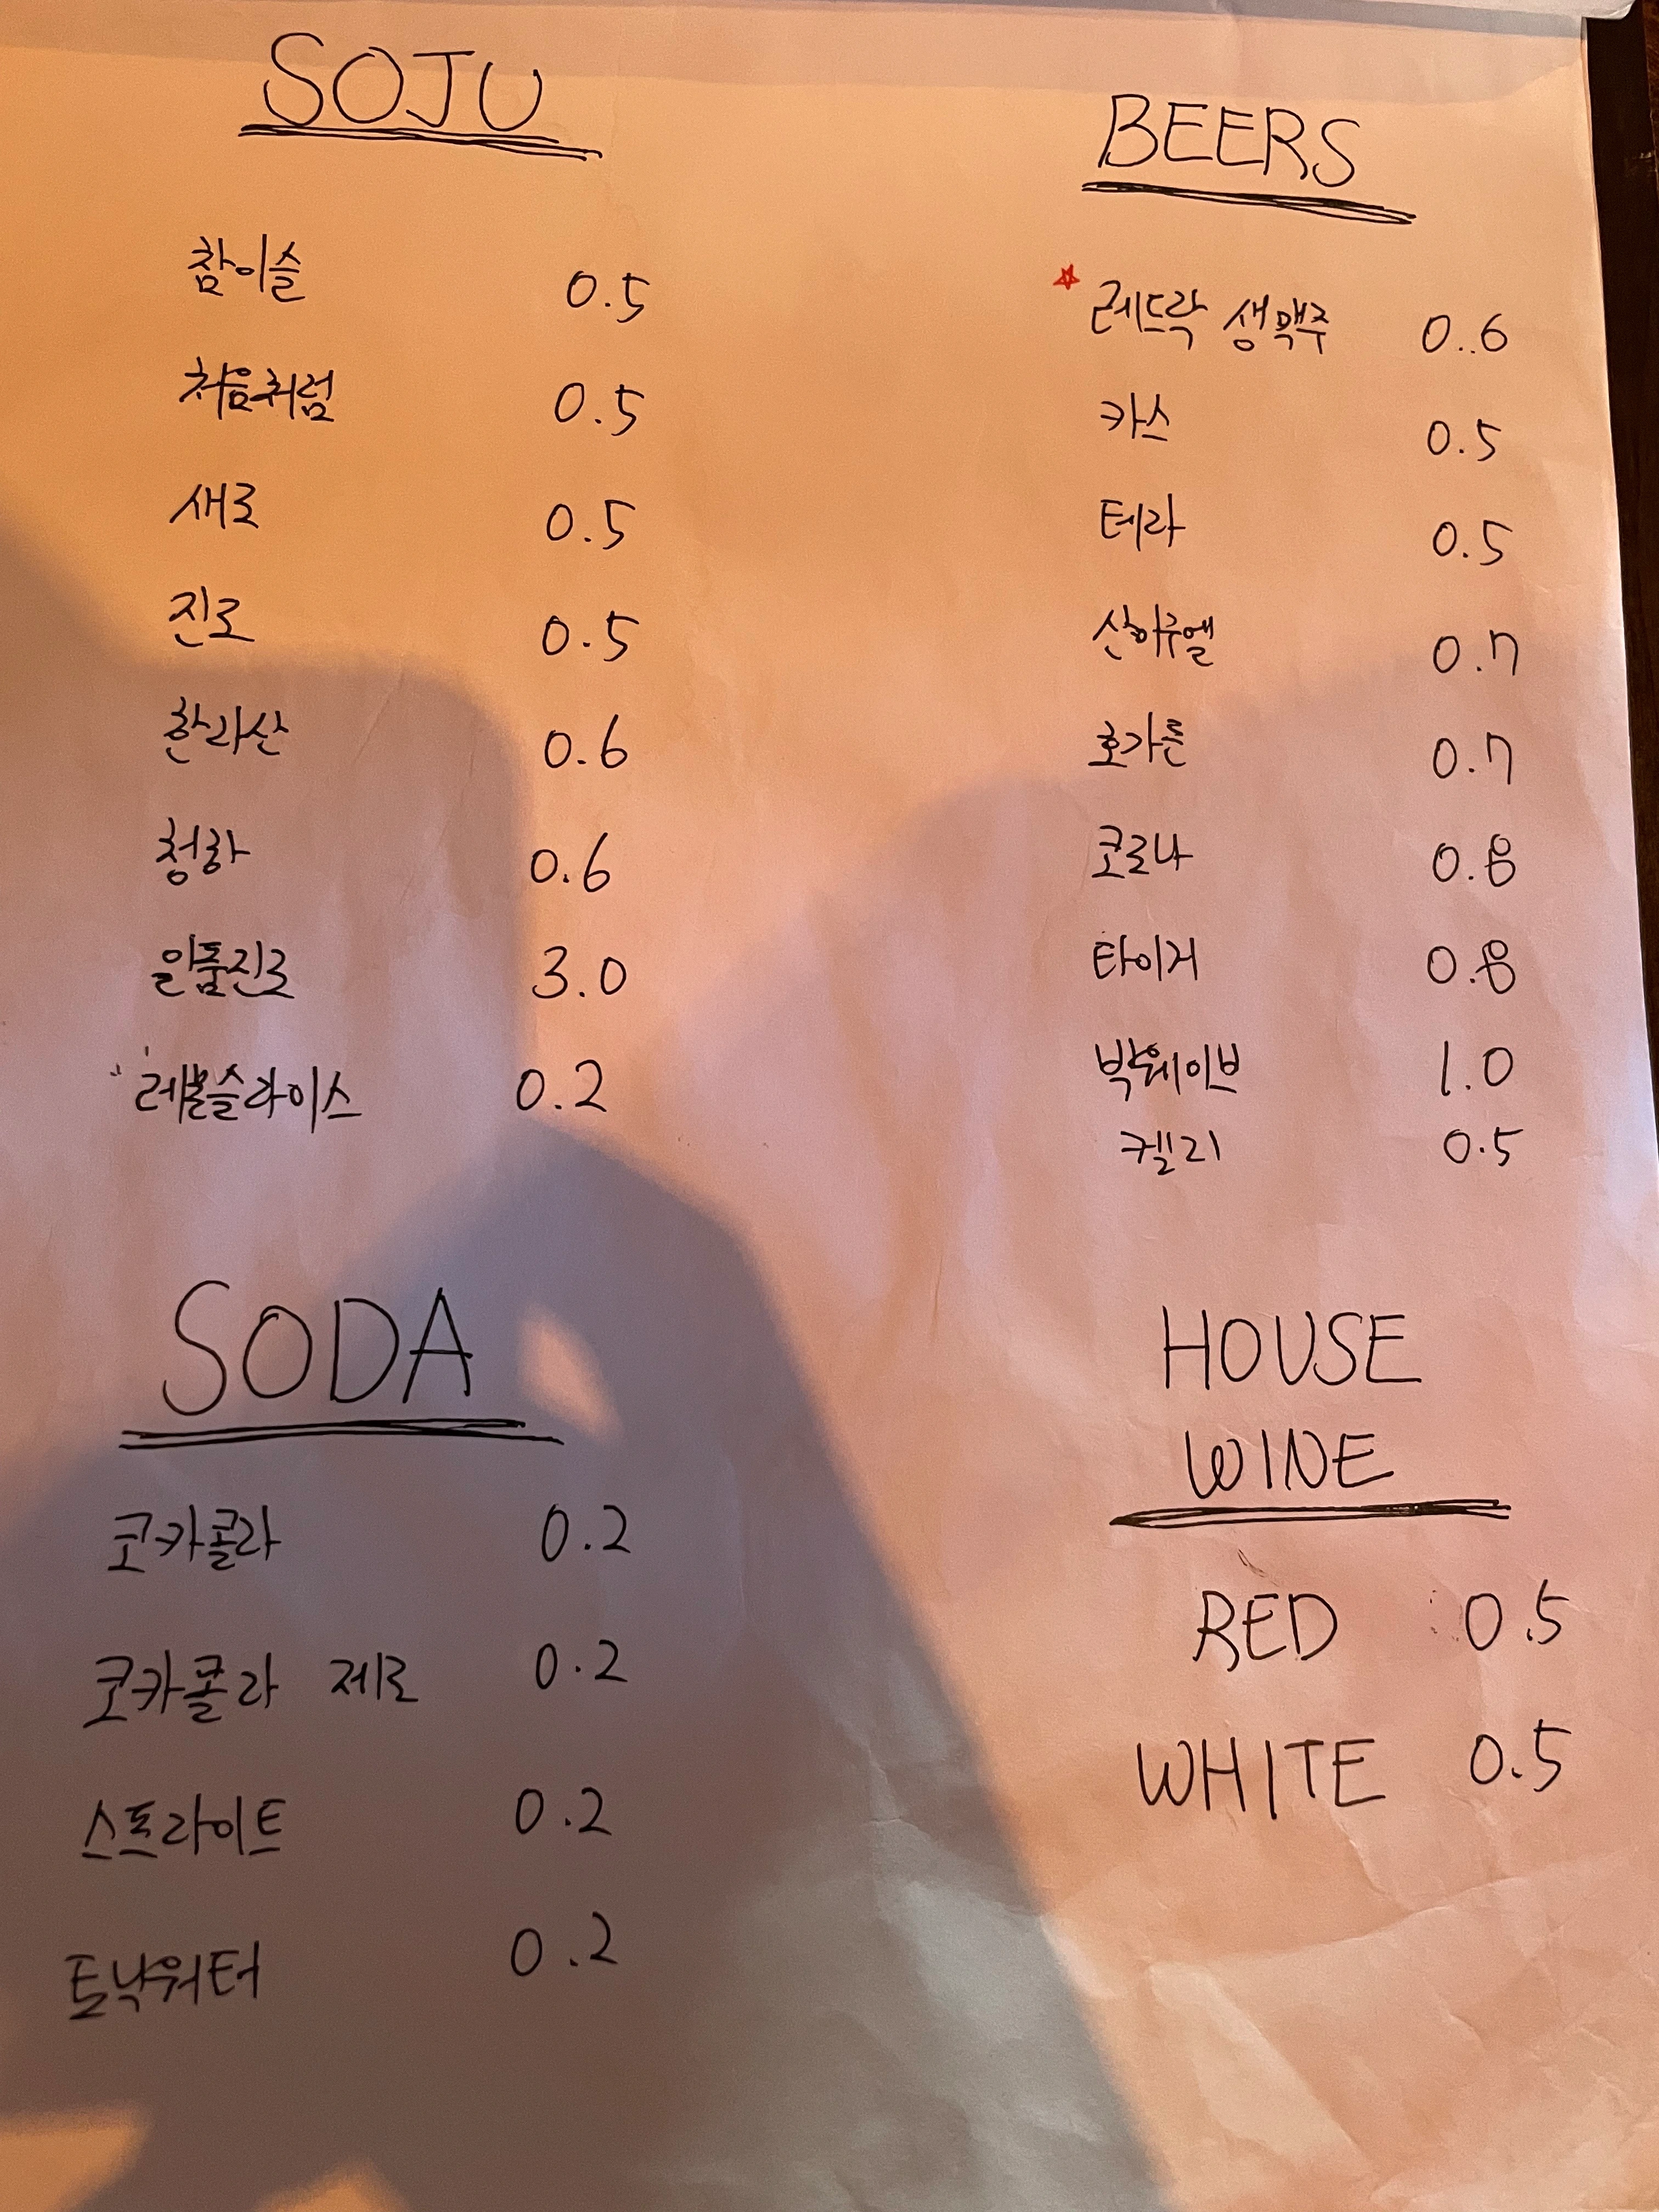 SOJU
참이슬 0.5
처음처럼 0.5
새로 0.5
진로 0.5
한라산 0.6
청하 0.6
일품진로 3.0
레몬슬라이스 0.2
BEERS
레드락 생맥주 0.6
카스 0.5
테라 0.5
산미구엘 0.7
호가든 0.7
코로나 0.8
타이거 0.8
빅웨이브 1.0
켈리 0.5
SODA
코카콜라 0.2
코카콜라 제로 0.2
스프라이트 0.2
토닉워터 0.2
HOUSE
WINE
RED 0.5
WHITE 0.5